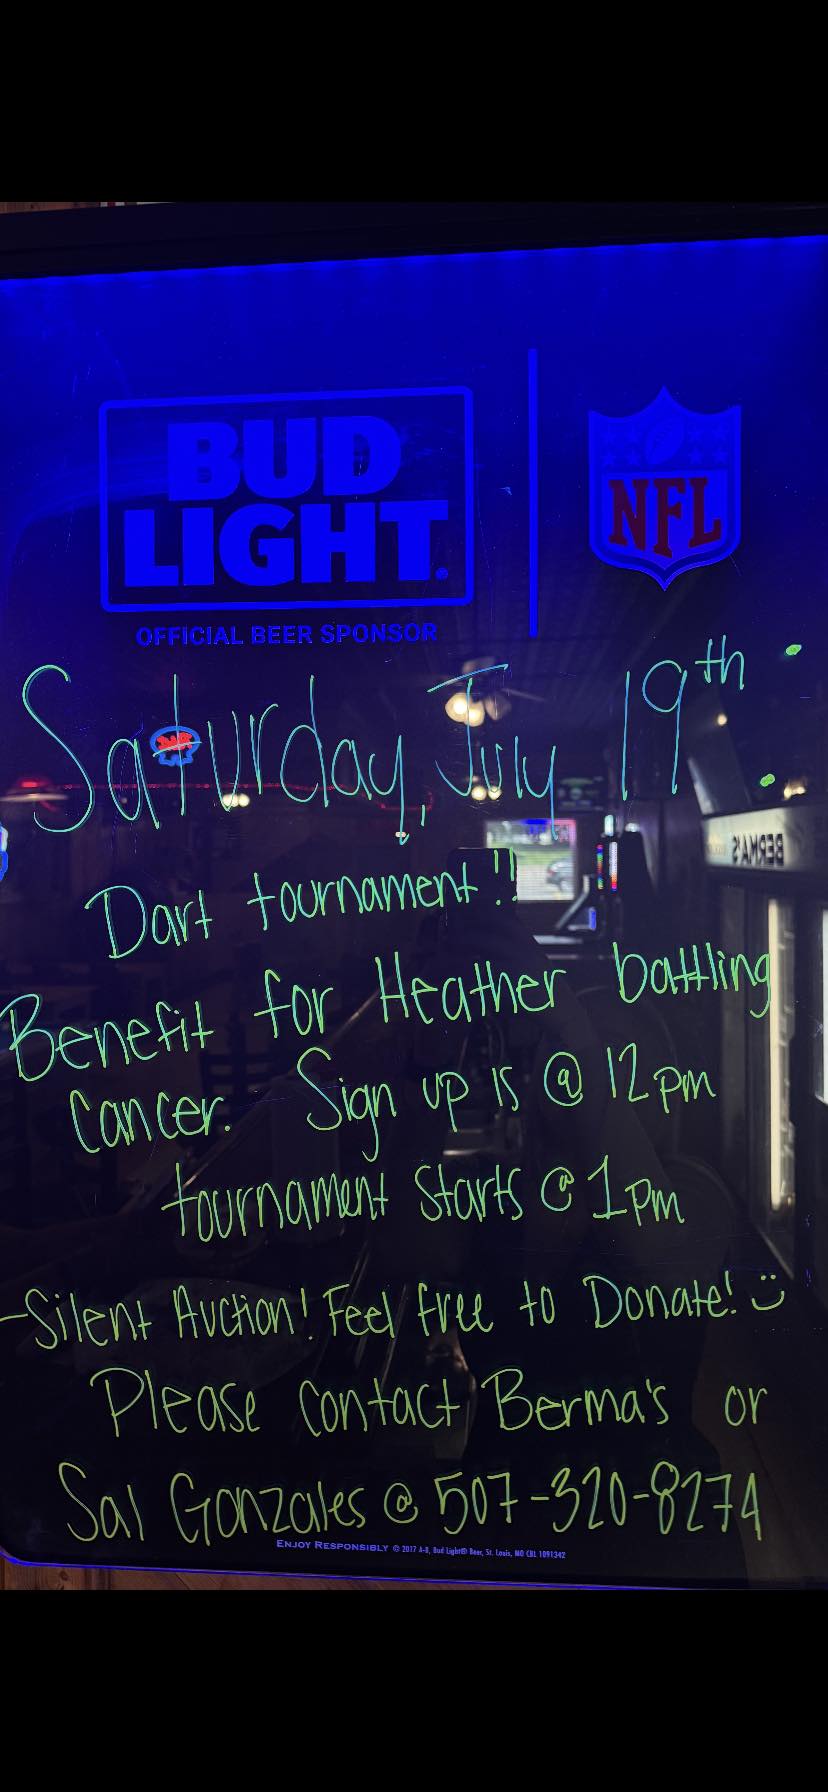 BUD
LIGHT.
OFFICIAL BEER SPONSOR
NFL
Saturday, July 19th
BERMA'S
Dart tournament!!
Benefit for Heather battling
Cancer. Sign up is @ 12pm
tournament starts @ 1pm
-Silent Auction! Feel free to Donate! :)
Please contact Berma's or
Sal Gonzales @ 507-320-8274
ENJOY RESPONSIBLY © 2017 A-B, Bud Light® Beer, St. Louis, MO CBL 1091342